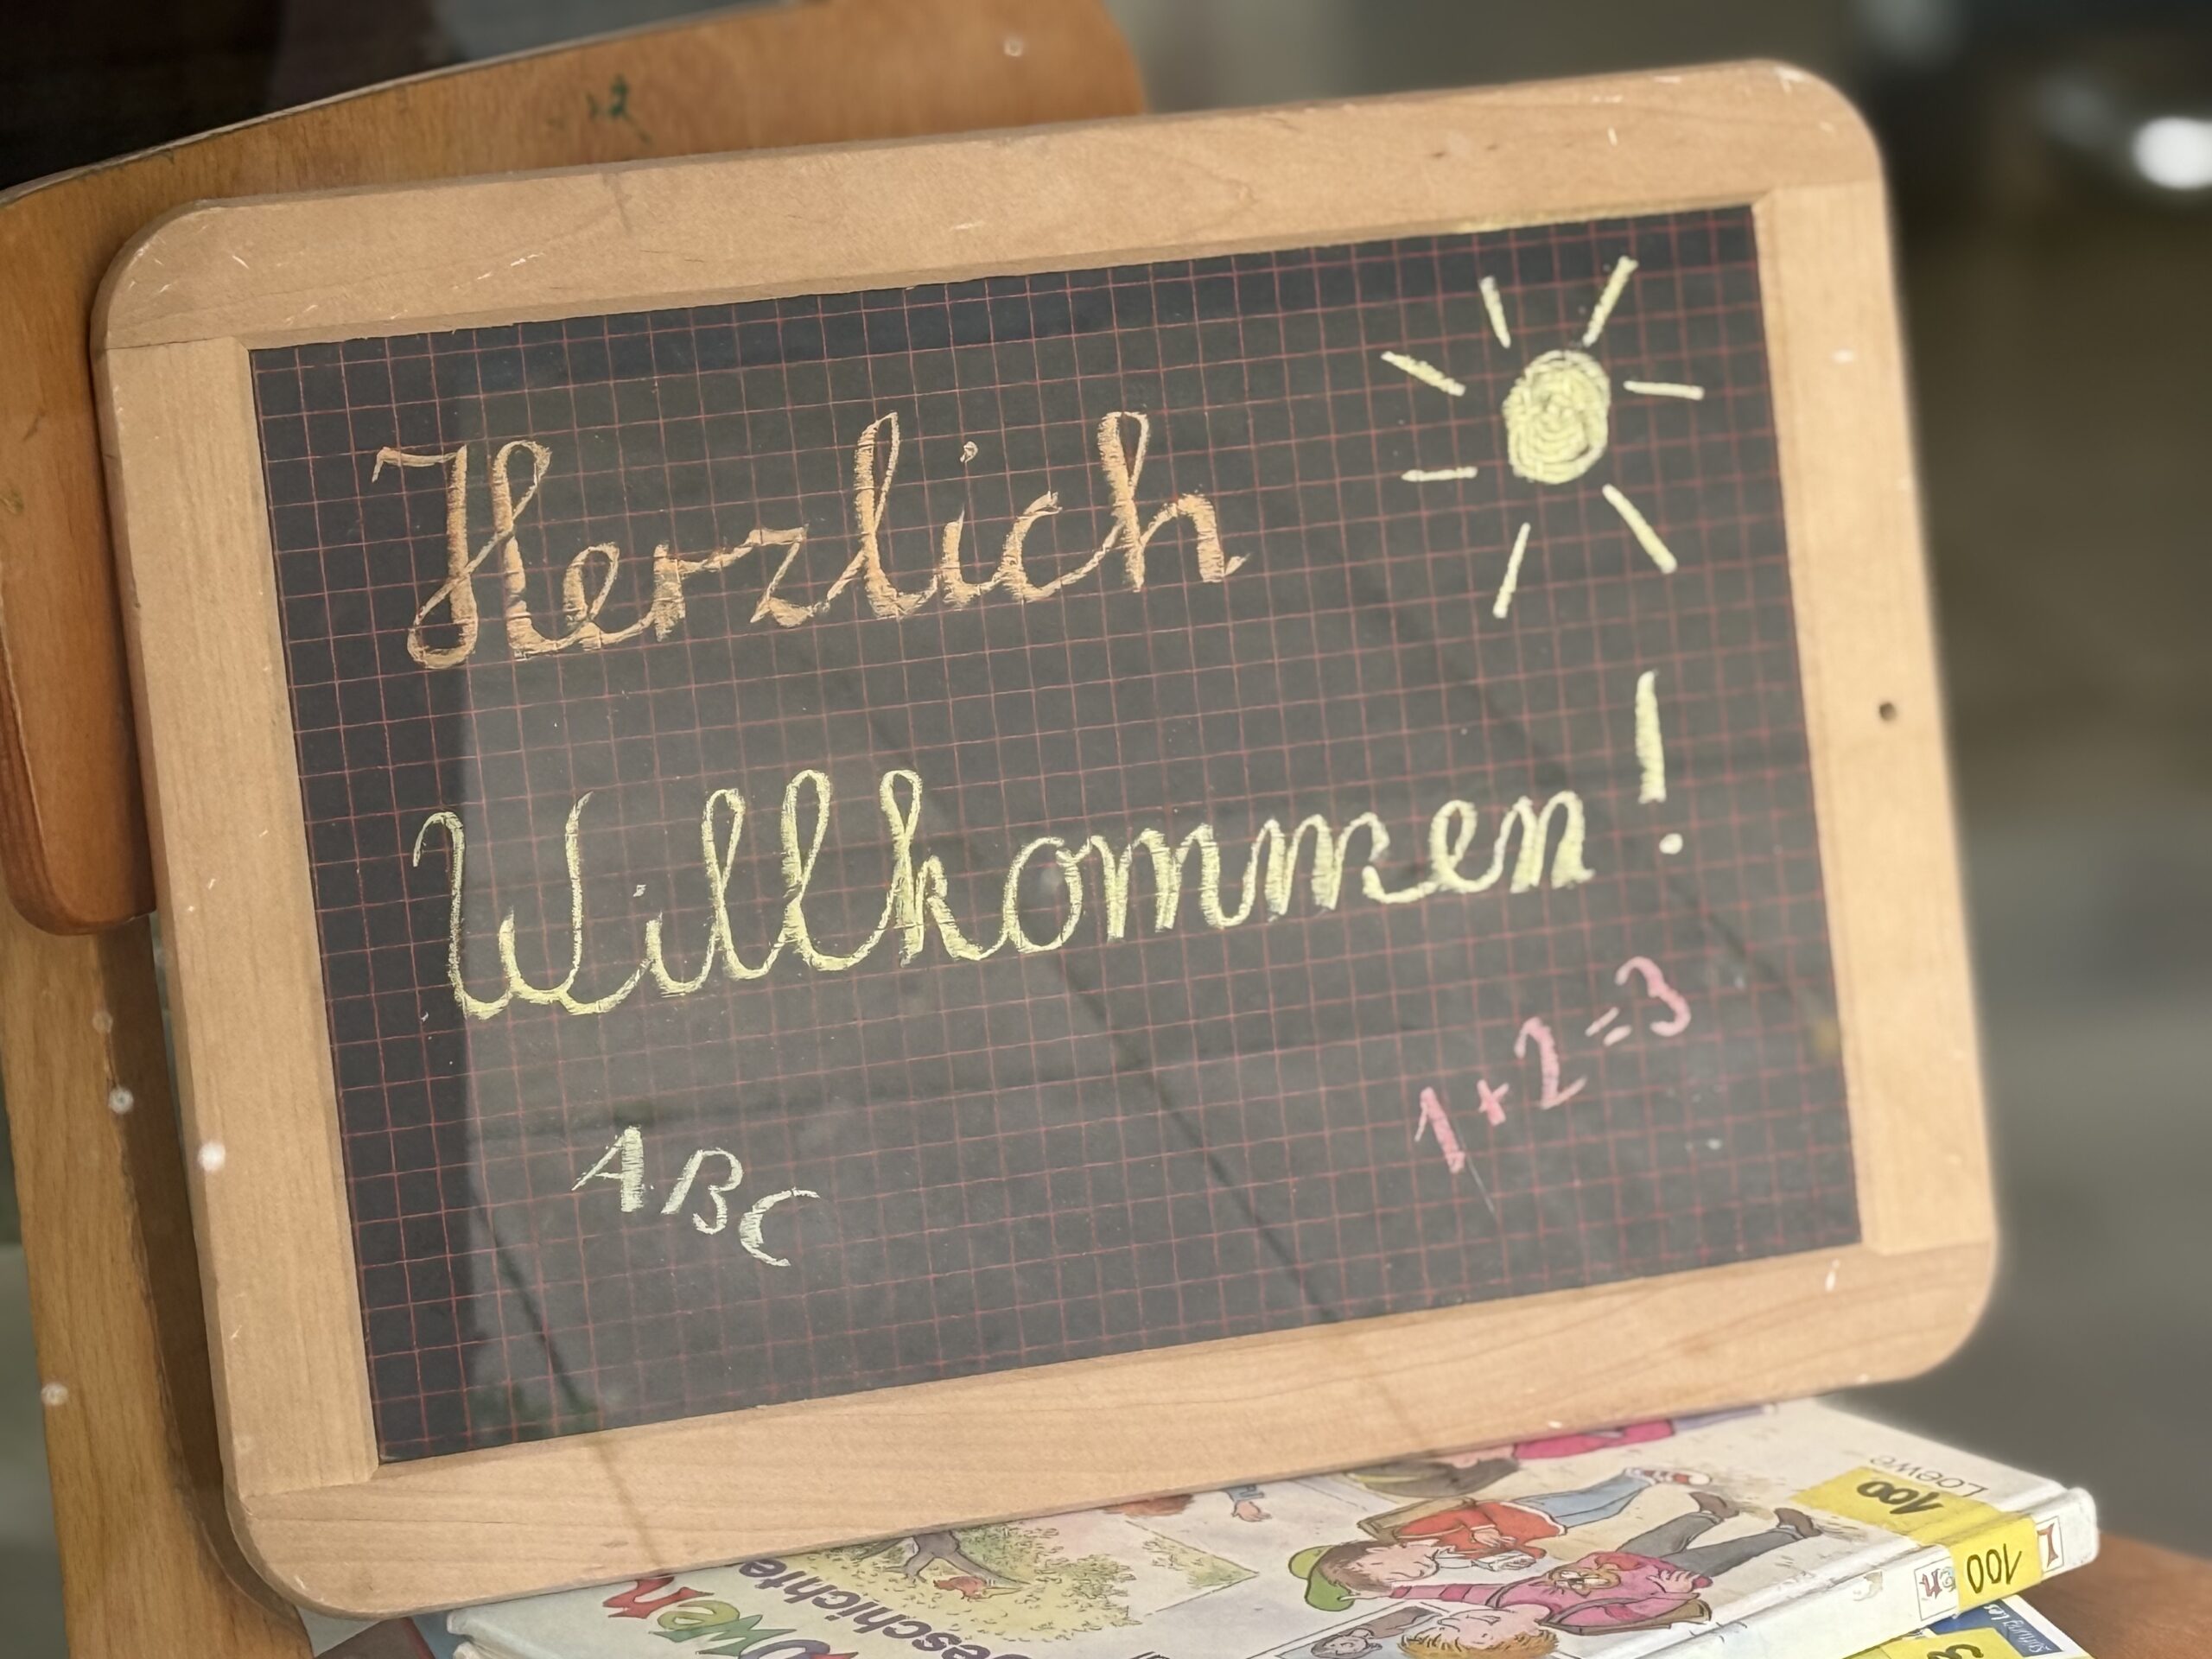 Herzlich
Willkommen!
ABC
1+2=3
Loewe
100
100